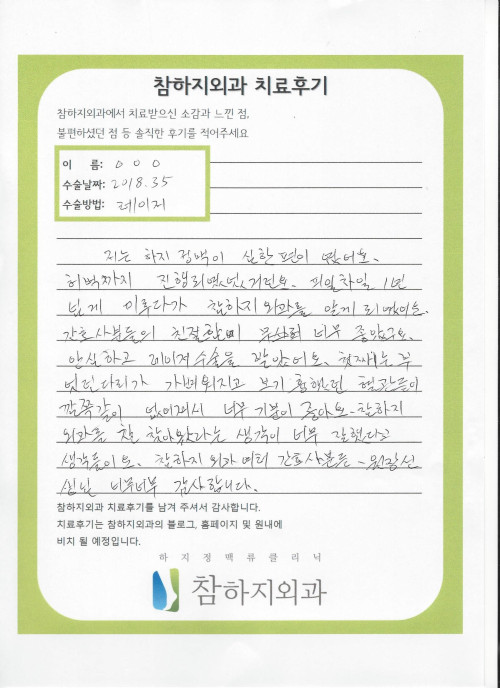 참하지외과 치료후기
참하지외과에서 치료받으신 소감과 느낀 점,
불편하셨던 점 등 솔직한 후기를 적어주세요
이 름: O O O
수술날짜: 2018.3.5
수술방법: 레이저
저는 하지정맥이 심한 편이 였어요.
허벅까지 진행되였었거든요. 차일 1년
넘게 미루다가 참하지외과를 알게 되였어요.
간호사분들의 친절함에 너무 좋았구요.
안심하고 레이저수술을 받았어요. 첫째는 무
겁던 다리가 가벼워지고 보기 흉했던 혈관들이
깜쪽같이 없어져서 너무 기분이 좋아요. 참하지
외과를 잘 찾아왔다라는 생각이 너무 잘했다고
생각들어요. 참하지 외과 간호사분들 원장선
생님 너무너무 감사합니다.
참하지외과 치료후기를 남겨 주셔서 감사합니다.
치료후기는 참하지외과의 블로그, 홈페이지 및 원내에
비치 될 예정입니다.
하지정맥류클리닉
참하지외과